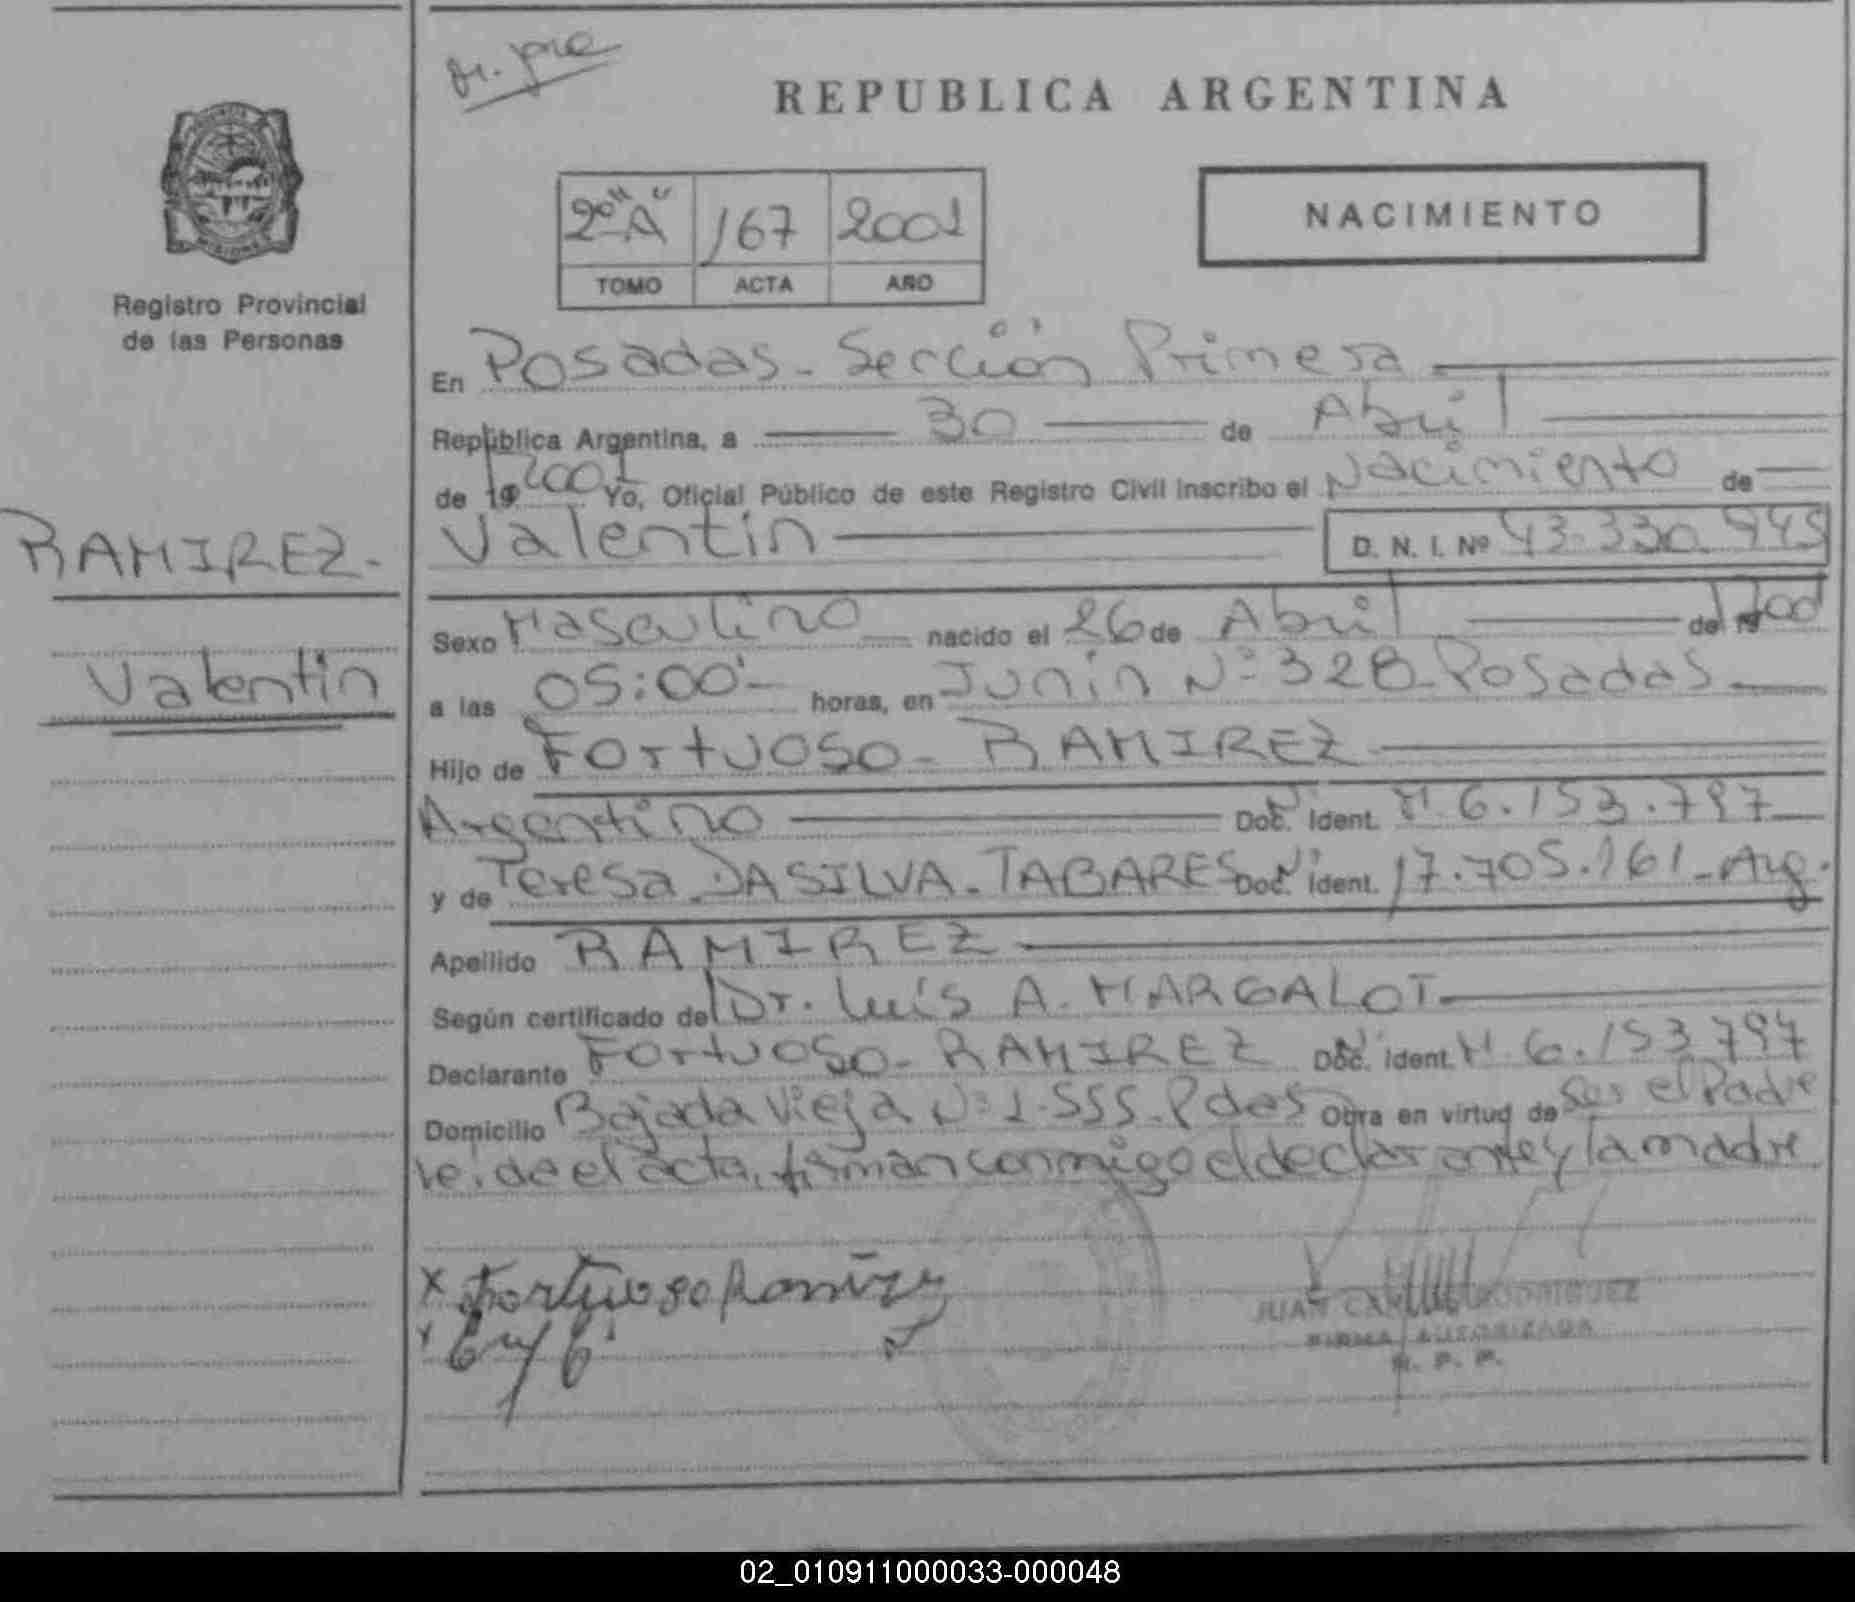 REPUBLICA ARGENTINA
2º "A" 167 2001
TOMO ACTA AÑO
NACIMIENTO
Registro Provincial
de las Personas
En Posadas - Sección Primera
República Argentina, a 30 de Abril
de 19 2001 Yo, Oficial Público de este Registro Civil inscribo el Nacimiento de
Valentin D. N. I. Nº 43.330.945
RAMIREZ.
Valentin
Sexo Masculino nacido el 26 de Abril de 19
a las 05:00'- horas, en Junin Nº 328 - Posadas
Hijo de Fortuoso - RAMIREZ
Argentino Doc. Ident. M. 6.153.797
y de Teresa DASILVA - TABARES Doc. Ident. 17.705.161 - Arg.
Apellido RAMIREZ
Según certificado del Dr. Luis A. MARGALOT
Declarante Fortuoso - RAMIREZ Doc. Ident. M. 6.153.797
Domicilio Bajada Vieja Nº 1.555 - Pdas Obra en virtud de Ser el Padre
leida el acta, firman conmigo el declarante y la madre
x Fortuoso Ramirez
JUAN RODRIGUEZ
FIRMA AUTORIZADA
R. P. P.
02_010911000033-000048